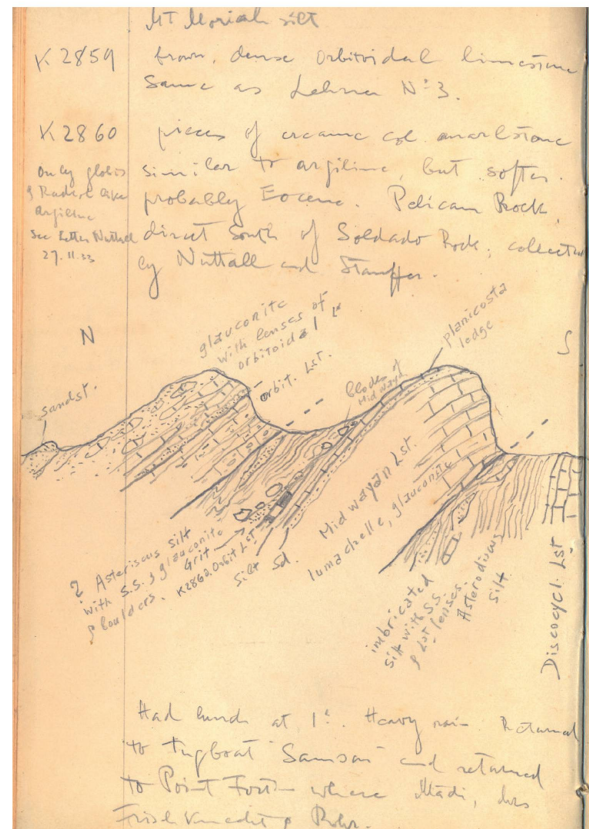 MT Moriah silt
K2859 brown, dense Orbitoidal limestone
Same as Lehner No 3.
K2860 pieces of creamc col. marlstone
similar to argiline, but softer.
probably Eocene. Pelican Rock,
direct South of Soldado Rock, collected
by Nuttall and Stauffer.
Only globis
& Radiol. like
Argiline
See letter Nuttall
27.11.33
N
S
glauconite
with lenses of
orbitoidal
orbit. Lst.
planicosta
lodge
sandst.
Blocks of
Midwayan
Midwayan Lst.
lumachelle, glauconite
Asteriscus silt
with S.S. & glauconite
& boulders.
Grit
K2862 Orbit Lst
Silt Sd.
imbricated
silt with S.S.
& Lst lenses.
Asterodiscus
silt.
Discocycl. Lst
Had lunch at 1h. Heavy rain. Returned
to tugboat "Samson" and returned
to Point Fortin where